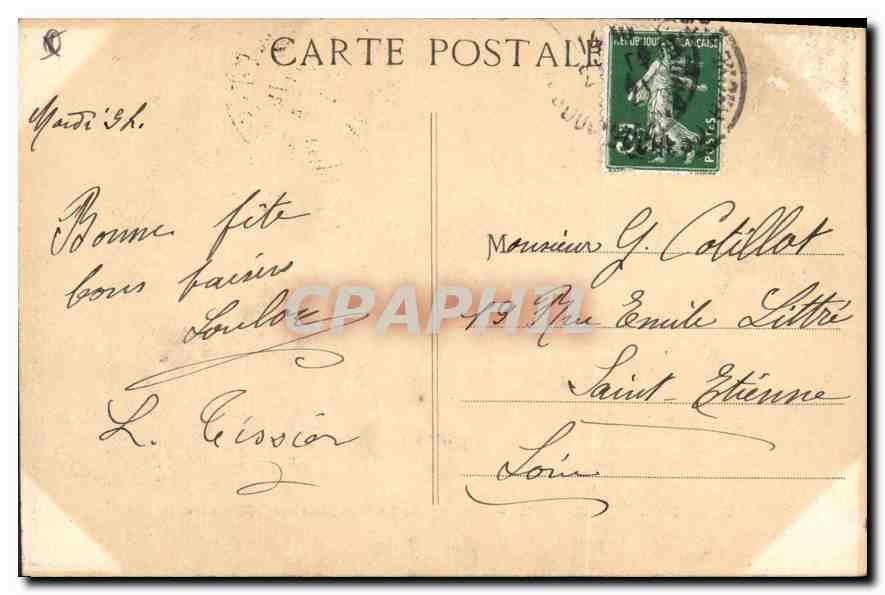 CARTE POSTALE
REPUBLIQUE FRANÇAISE
5c
POSTES
Mardi 9h.
Bonne fête
bons baisers
Loulou
L. Tissier
Monsieur G. Cotillot
19 Rue Emile Littré
Saint-Etienne
Loire
CPAPHIL